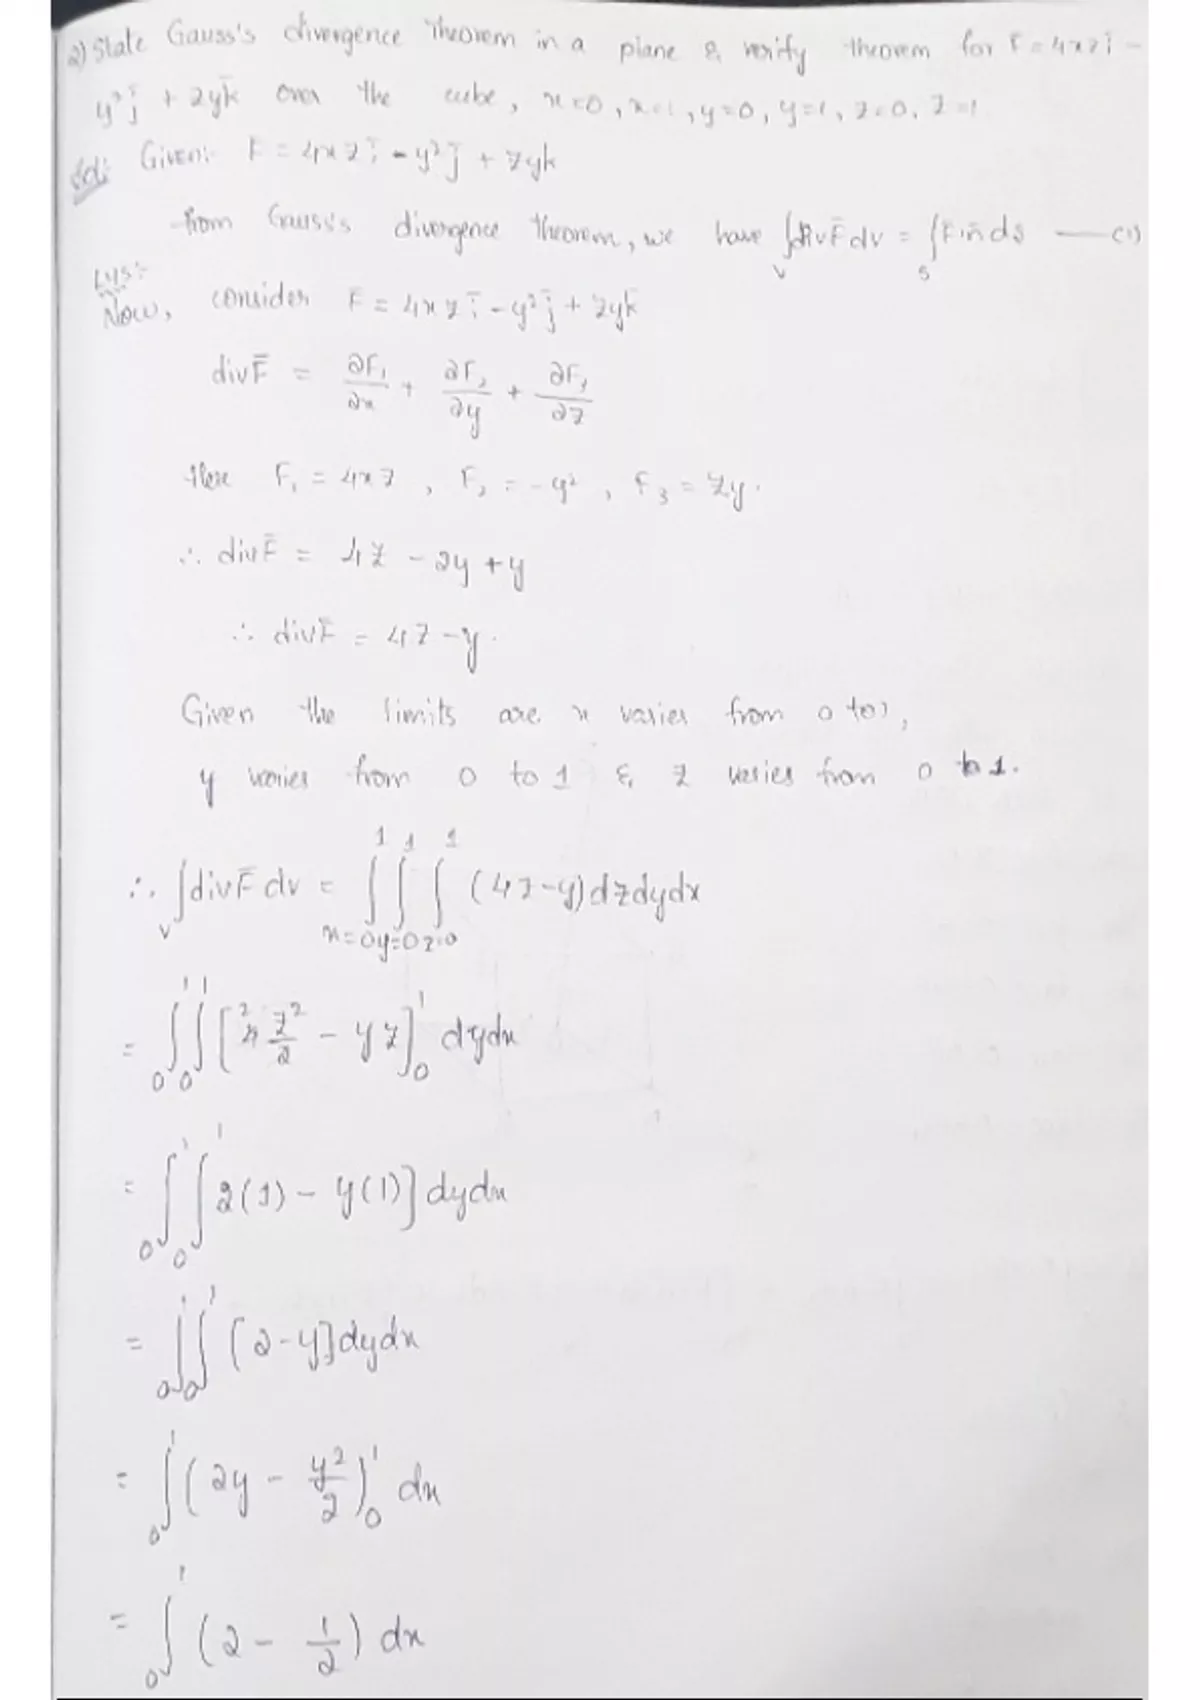 2) State Gauss's divergence Theorem in a plane & verify theorem for F̄ = 4xz ī -
y² j̄ + zyk̄ over the cube, x=0, x=1, y=0, y=1, z=0, z=1
Sol: Given:- F̄ = 4xz ī - y² j̄ + zyk
from Gauss's divergence theorem, we have ∫_V div F̄ dv = ∫_S F̄·n̄ ds —(1)
LHS:-
Now, consider F̄ = 4xz ī - y² j̄ + zyk̄
div F̄ = ∂F₁/∂x + ∂F₂/∂y + ∂F₃/∂z
Here F₁ = 4xz , F₂ = -y² , F₃ = zy.
∴ div F̄ = 4z - 2y + y
∴ div F̄ = 4z - y.
Given the limits are x varies from 0 to 1,
y varies from 0 to 1 & z varies from 0 to 1.
∴ ∫_V div F̄ dv = ∫_{x=0}^{1} ∫_{y=0}^{1} ∫_{z=0}^{1} (4z-y) dzdydx
= ∫_0^1 ∫_0^1 [4² z²/2 - yz]_0^1 dydx
= ∫_0^1 ∫_0^1 [2(1) - y(1)] dydx
= ∫_0^1 ∫_0^1 [2-y] dydx
= ∫_0^1 (2y - y²/2)_0^1 dx
= ∫_0^1 (2 - 1/2) dx